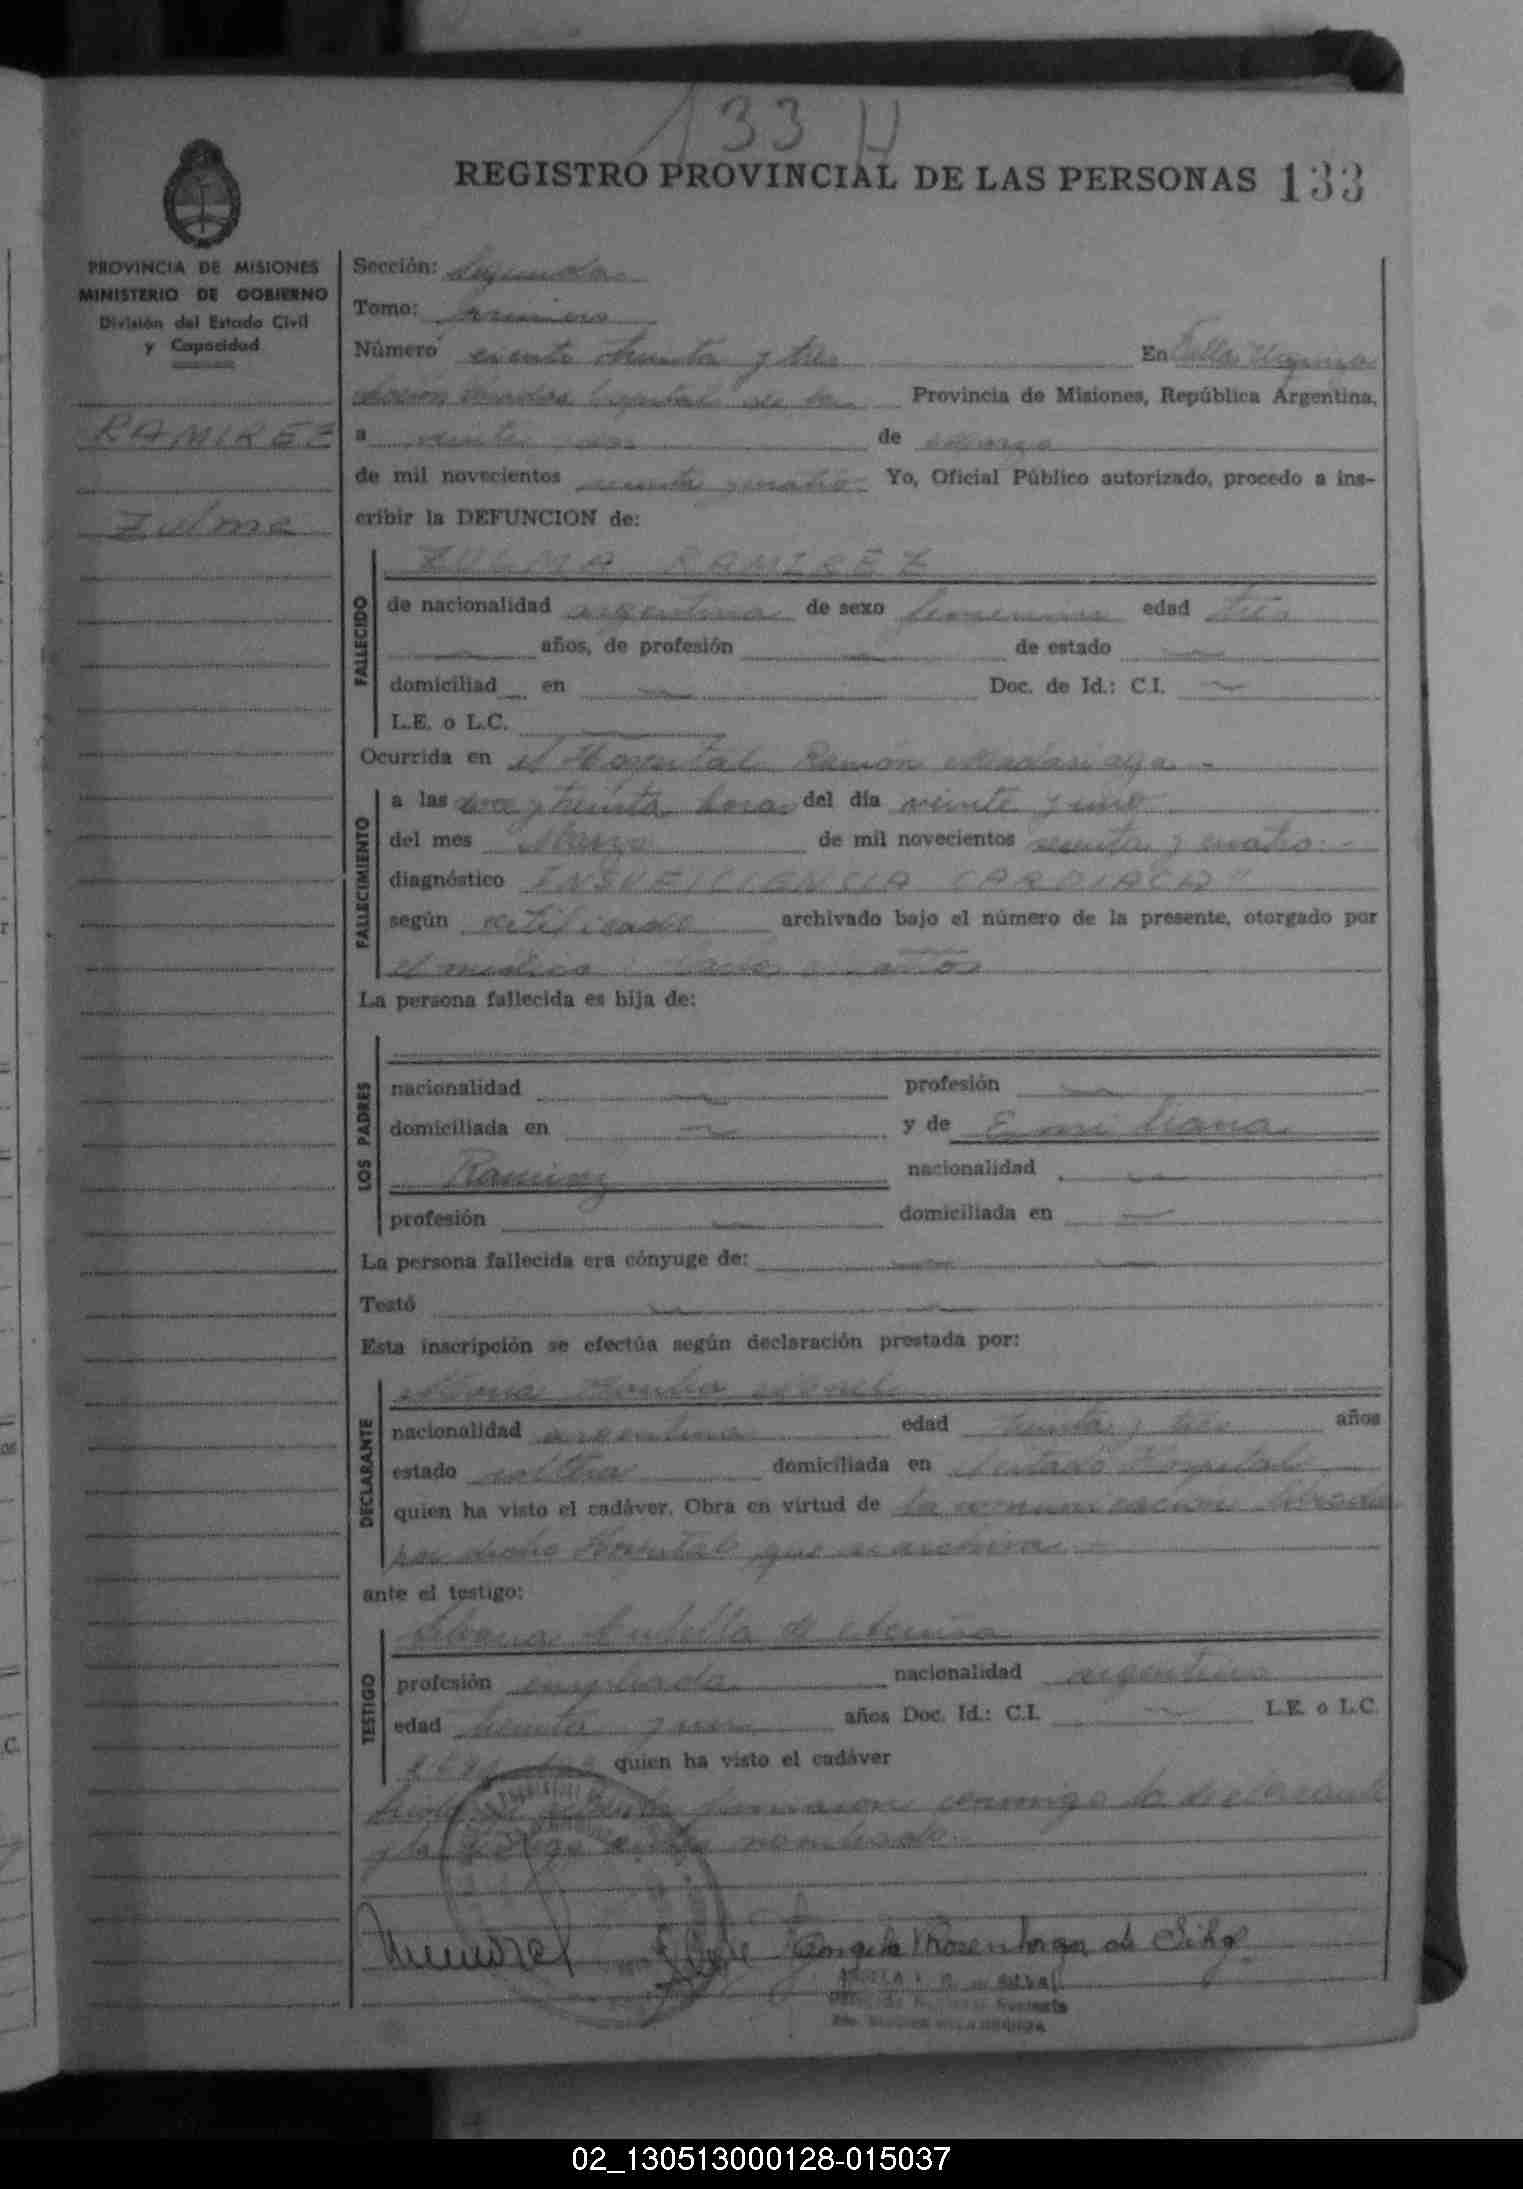 133 H
REGISTRO PROVINCIAL DE LAS PERSONAS 133
PROVINCIA DE MISIONES
MINISTERIO DE GOBIERNO
División del Estado Civil
y Capacidad
RAMIREZ
Zulma
Sección: Segunda
Tomo: primero
Número ciento treinta y tres En Villa Urquiza
Posadas Capital de la Provincia de Misiones, República Argentina,
a veinte dos de Marzo
de mil novecientos sesenta y cuatro Yo, Oficial Público autorizado, procedo a ins-
cribir la DEFUNCION de:
ZULMA RAMIREZ
FALLECIDO
de nacionalidad argentina de sexo femenino edad tres
años, de profesión de estado
domiciliad en Doc. de Id.: C.I.
L.E. o L.C.
Ocurrida en el Hospital Ramón Madariaga -
FALLECIMIENTO
a las doce y treinta horas del día veinte y uno
del mes Marzo de mil novecientos sesenta y cuatro.-
diagnóstico INSUFICIENCIA CARDIACA"
según certificado archivado bajo el número de la presente, otorgado por
el medico
La persona fallecida es hija de:
LOS PADRES
nacionalidad profesión
domiciliada en y de Emiliana
Ramirez nacionalidad
profesión domiciliada en
La persona fallecida era cónyuge de:
Testó
Esta inscripción se efectúa según declaración prestada por:
DECLARANTE
nacionalidad argentina edad treinta y tres años
estado soltera domiciliada en citado Hospital
quien ha visto el cadáver. Obra en virtud de la comunicación librada
por dicho Hospital que se archiva.-
ante el testigo:
de
TESTIGO
profesión empleada nacionalidad argentina
edad treinta y años Doc. Id.: C.I. L.E. o L.C.
quien ha visto el cadáver
firmaron conmigo la declarante
y la testigo antes nombrada.
Angela de Silva
02_130513000128-015037